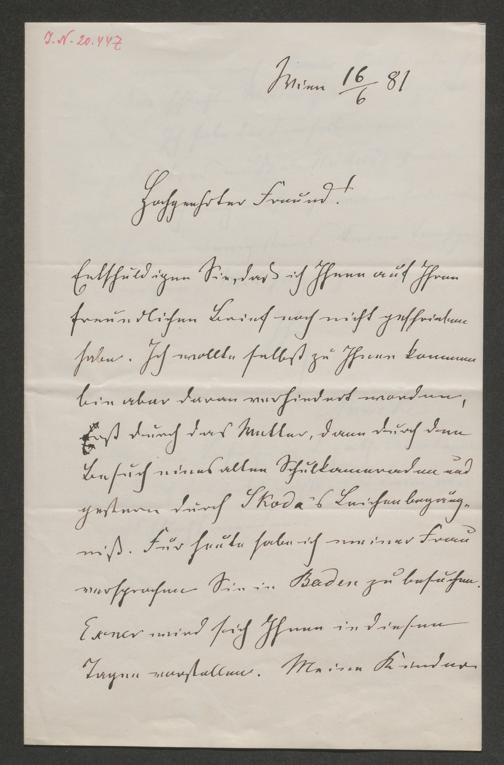 I.N. 20.447
Wien 16/6 81
Hochgeehrter Freund!
Entschuldigen Sie, daß ich Ihnen auf Ihren
freundlichen Brief noch nicht geschrieben
habe. Ich wollte selbst zu Ihnen kommen
bin aber daran verhindert worden,
erst durch das Wetter, dann durch den
Besuch eines alten Schulkameraden und
gestern durch Skoda's Leichenbegäng-
niß. Für heute habe ich meiner Frau
versprochen Sie in Baden zu besuchen.
Exner wird sich Ihnen in diesen
Tagen vorstellen. Meine Kinder